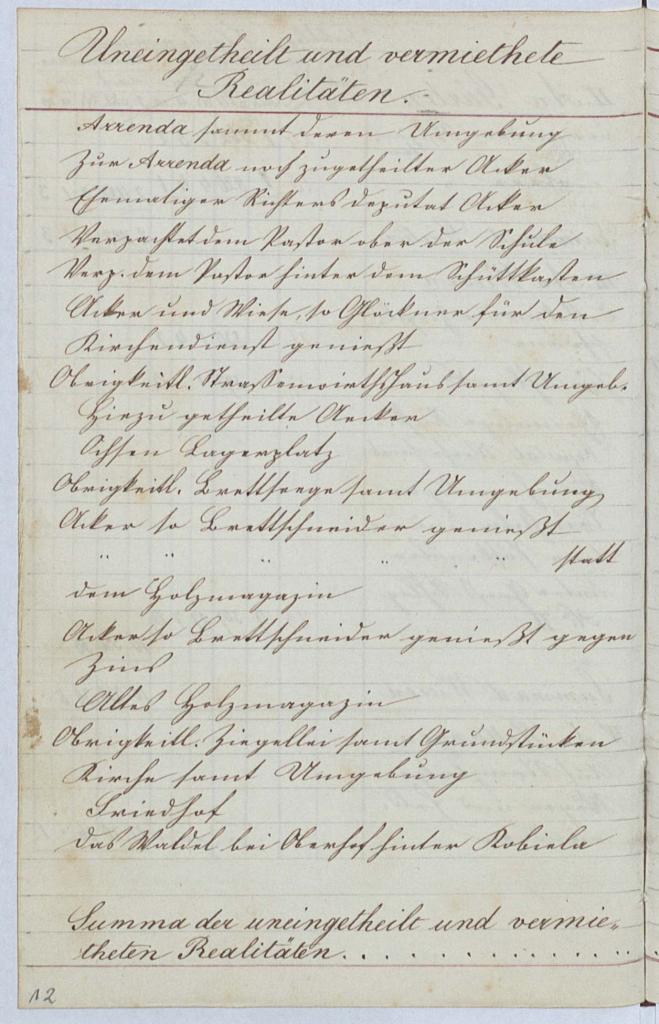 Uneingetheilt und vermiethete
Realitäten.
Arrenda sammt deren Umgebung
Zur Arrenda noch zugetheilter Acker
Ehemaliger Richters deputat Acker
Verpachtet dem Pastor ober der Schule
Verp. dem Pastor hinter dem Schüttkasten
Acker und Wiese, so Glöckner für den
Kirchendienst genießt
Obrigkeitl. Strassenwirthshaus samt Umgeb.
Hiezu getheilte Aecker
Ochsen Lagerplatz
Obrigkeitl. Brettseege samt Umgebung
Acker so Brettschneider genießt
" " " " " statt
dem Holzmagazin
Acker so Brettschneider genießt gegen
Zins
Altes Holzmagazin
Obrigkeitl. Ziegellei samt Grundstücken
Kirche samt Umgebung
Friedhof
das Waldel bei Oberhof hinter Kobiela
Summa der uneingetheilt und vermie=
theten Realitäten. . . . . . . . . . . . .
12